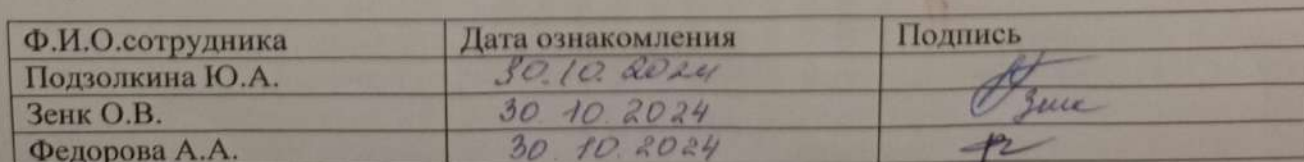 Ф.И.О.сотрудника Дата ознакомления Подпись
Подзолкина Ю.А. 30.10.2024
Зенк О.В. 30 10.2024 Зенк
Федорова А.А. 30 10.2024